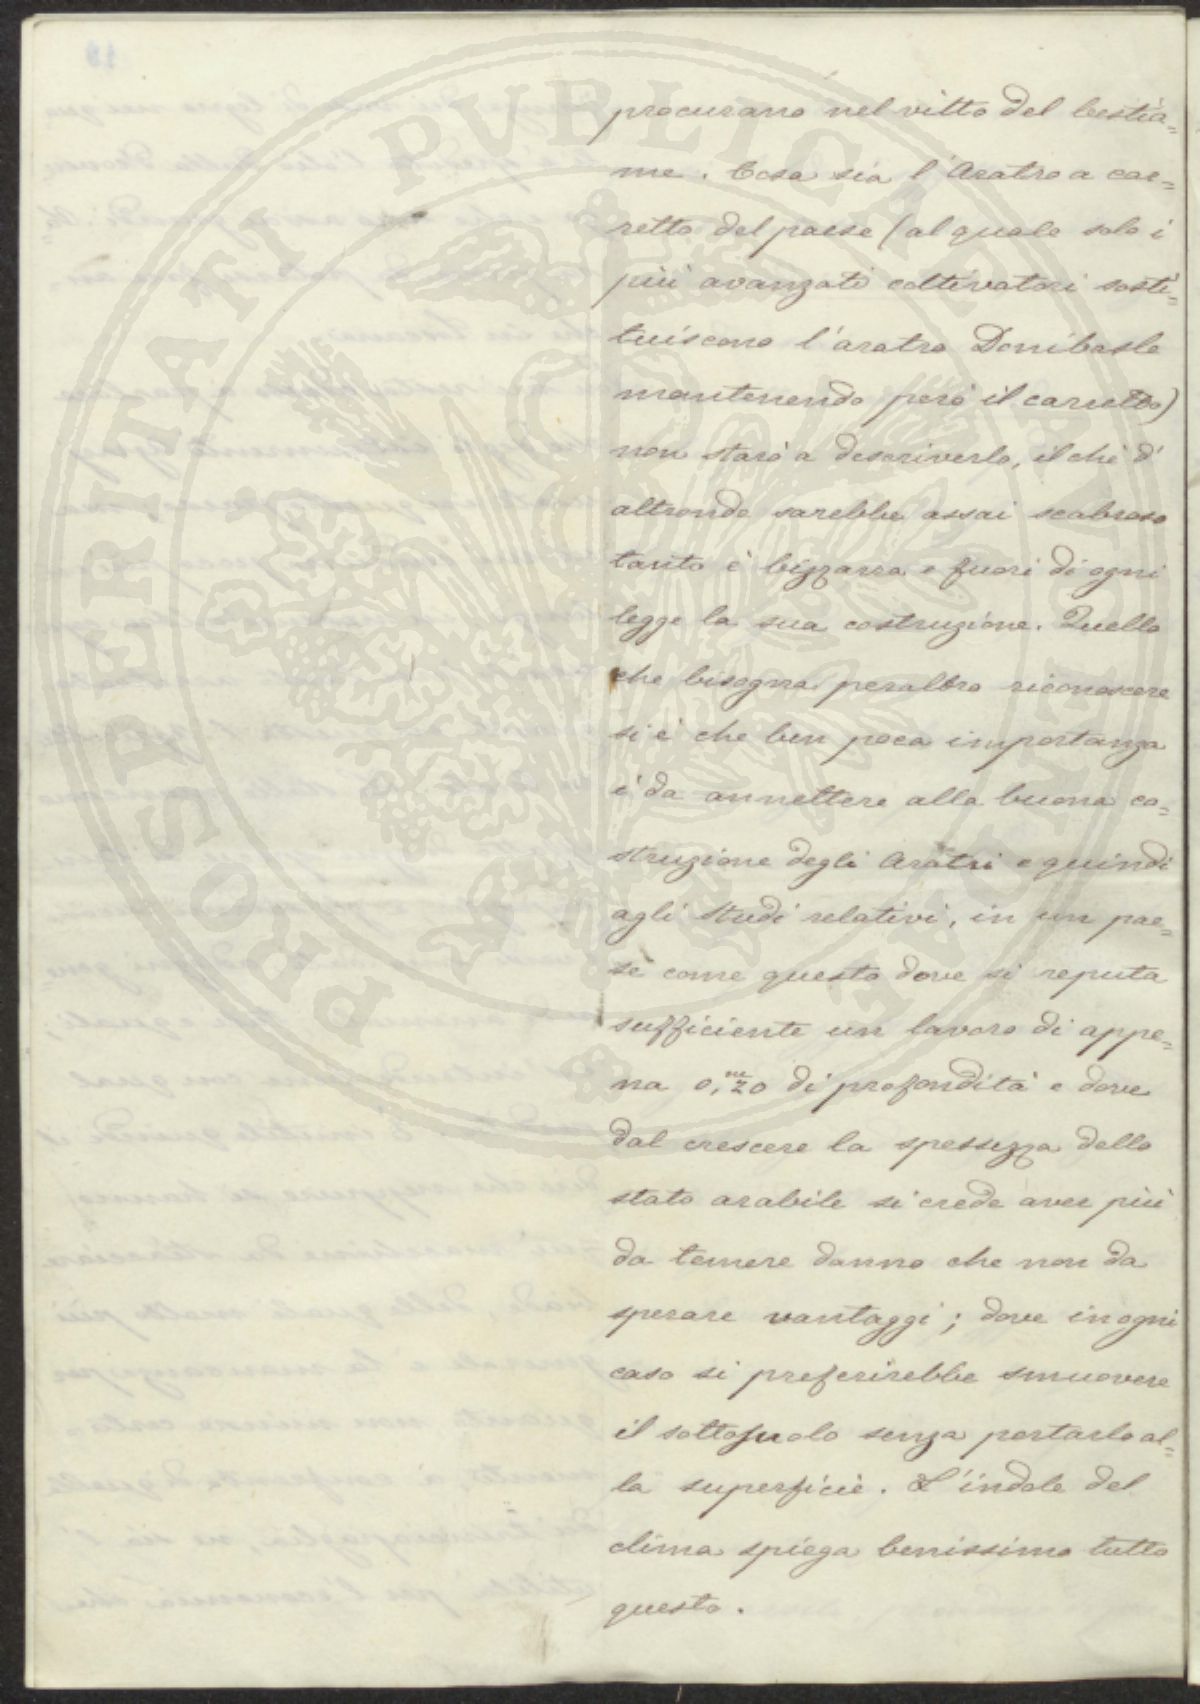 procurano nel vitto del bestia=
me. Cosa sia l'Aratro a car=
retto del paese (al quale solo i
più avanzati coltivatori sosti=
tuiscono l'aratro Donibasle
mantenendo però il carretto)
non starò a descriverlo, il chè d'
altronde sarebbe assai scabroso
tanto è bizzarra e fuori di ogni
legge la sua costruzione. Quello
che bisogna peraltro riconoscere
si è che ben poca importanza
è da annettere alla buona co=
struzione degli Aratri e quindi
agli studi relativi, in un pae=
se come questo dove si reputa
sufficiente un lavoro di appe=
na 0,m20 di profondità e dove
dal crescere la spessezza dello
stato arabile si crede aver più
da temere danno che non da
sperare vantaggi; dove in ogni
caso si preferirebbe smuovere
il sottosuolo senza portarlo al=
la superficie. L'indole del
clima spiega benissimo tutto
questo.
PROSPERITATI PUBLICAE AUGENDAE